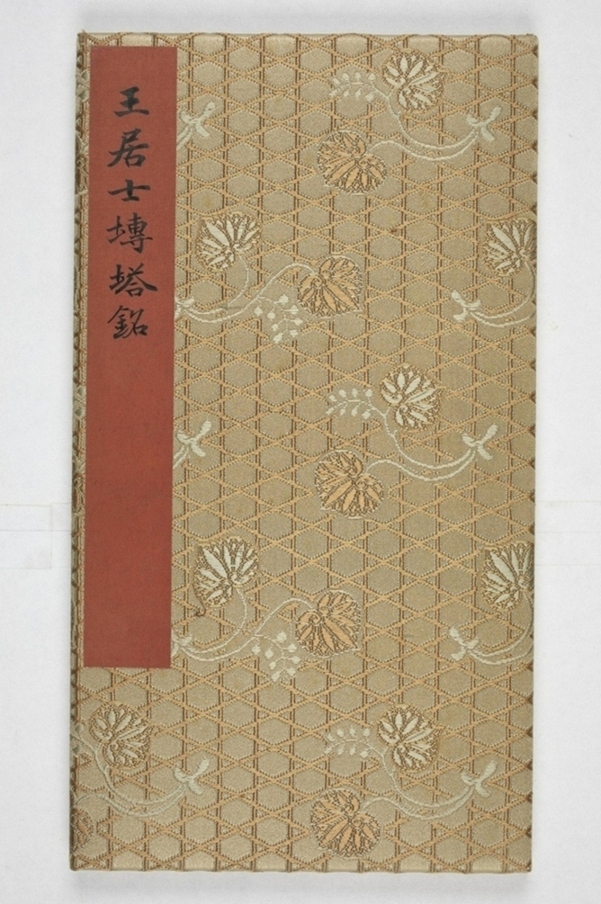 王居士塼塔銘